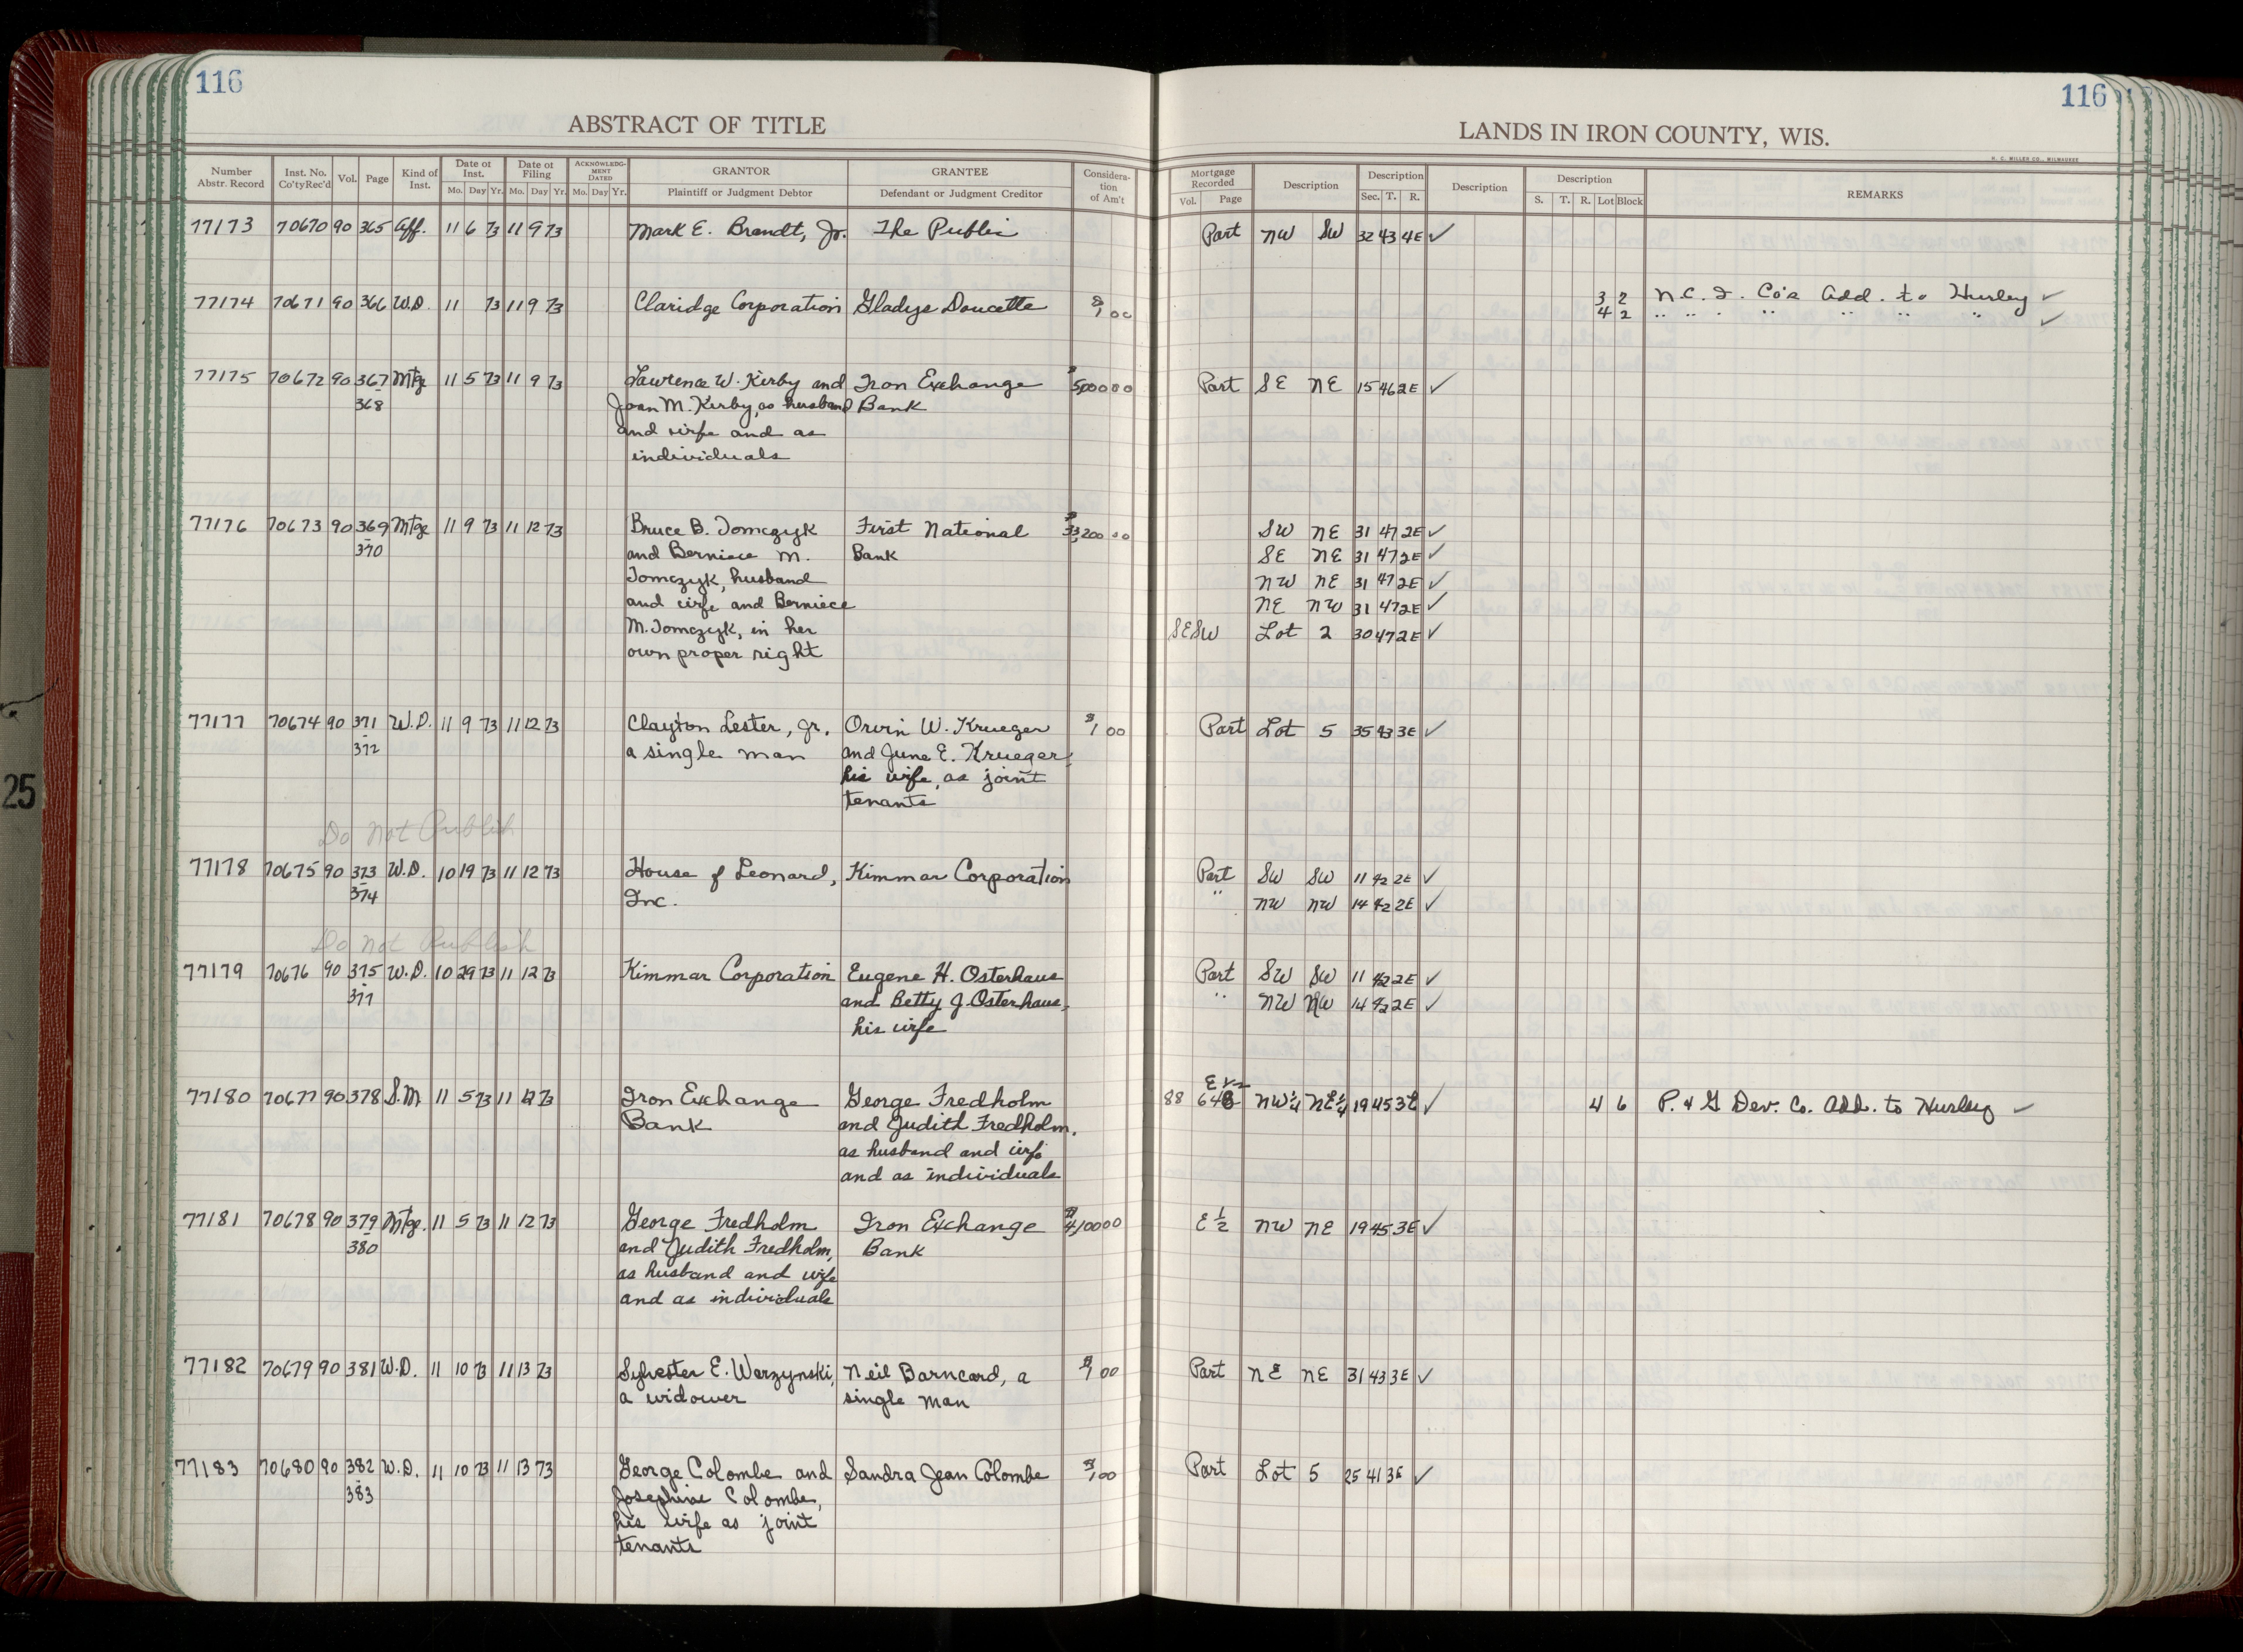 116
116
ABSTRACT OF TITLE
LANDS IN IRON COUNTY, WIS.
H. C. MILLER CO., MILWAUKEE
Number Abstr. Record Inst. No. Co'ty Rec'd Vol. Page Kind of Inst. Date of Inst. Mo. Day Yr. Date of Filing Mo. Day Yr. ACKNOWLEDGMENT DATED Mo. Day Yr. GRANTOR Plaintiff or Judgment Debtor GRANTEE Defendant or Judgment Creditor Consideration of Am't Mortgage Recorded Vol. Page Description Description Sec. T. R. Description Description S. T. R. Lot Block REMARKS
77173 70670 90 365 Aff. 11 6 73 11 9 73 Mark E. Brandt, Jr. The Public Part NW SW 32 43 4E ✓
77174 70671 90 366 W.D. 11 73 11 9 73 Claridge Corporation Gladys Doucette $1 00 3 2 N.C.I. Co's Add. to Hurley ✓
4 2 " " " " " " " ✓
77175 70672 90 367 Mtge 11 5 73 11 9 73 Lawrence W. Kirby and Iron Exchange $5,000 00 Part SE NE 15 46 2E ✓
- 368 Joan M. Kirby, as husband Bank
and wife and as
individuals
77176 70673 90 369 Mtge 11 9 73 11 12 73 Bruce B. Tomczyk First National $33,200 00 SW NE 31 47 2E ✓
- 370 and Berniece M. Bank SE NE 31 47 2E ✓
Tomczyk, husband NW NE 31 47 2E ✓
and wife and Berniece NE NW 31 47 2E ✓
M. Tomczyk, in her SESW Lot 2 30 47 2E ✓
own proper right
77177 70674 90 371 W.D. 11 9 73 11 12 73 Clayton Lester, Jr. Orvin W. Krueger $1 00 Part Lot 5 35 43 3E ✓
- 372 a single man and June E. Krueger,
his wife, as joint
tenants
Do Not Publish
77178 70675 90 373 W.D. 10 19 73 11 12 73 House of Leonard, Kimmar Corporation Part SW SW 11 42 2E ✓
- 374 Inc. " NW NW 14 42 2E ✓
Do Not Publish
77179 70676 90 375 W.D. 10 29 73 11 12 73 Kimmar Corporation Eugene H. Osterhaus Part SW SW 11 42 2E ✓
- 377 and Betty J. Osterhaus, " NW NW 14 42 2E ✓
his wife
E 1/2
77180 70677 90 378 S.M. 11 5 73 11 12 73 Iron Exchange George Fredholm 88 648 NW¼ NE¼ 19 45 3E ✓ 4 6 P. & G Dev. Co. Add. to Hurley ✓
Bank and Judith Fredholm,
as husband and wife
and as individuals
77181 70678 90 379 Mtge. 11 5 73 11 12 73 George Fredholm Iron Exchange E ½ NW NE 19 45 3E ✓
- 380 and Judith Fredholm, Bank
as husband and wife
and as individuals
77182 70679 90 381 W.D. 11 10 73 11 13 73 Sylvester E. Warzynski, Neil Barncard, a $1 00 Part NE NE 31 43 3E ✓
a widower single man
77183 70680 90 382 W.D. 11 10 73 11 13 73 George Colombe and Sandra Jean Colombe $1 00 Part Lot 5 25 41 3E ✓
- 383 Josephine Colombe,
his wife as joint
tenants
25